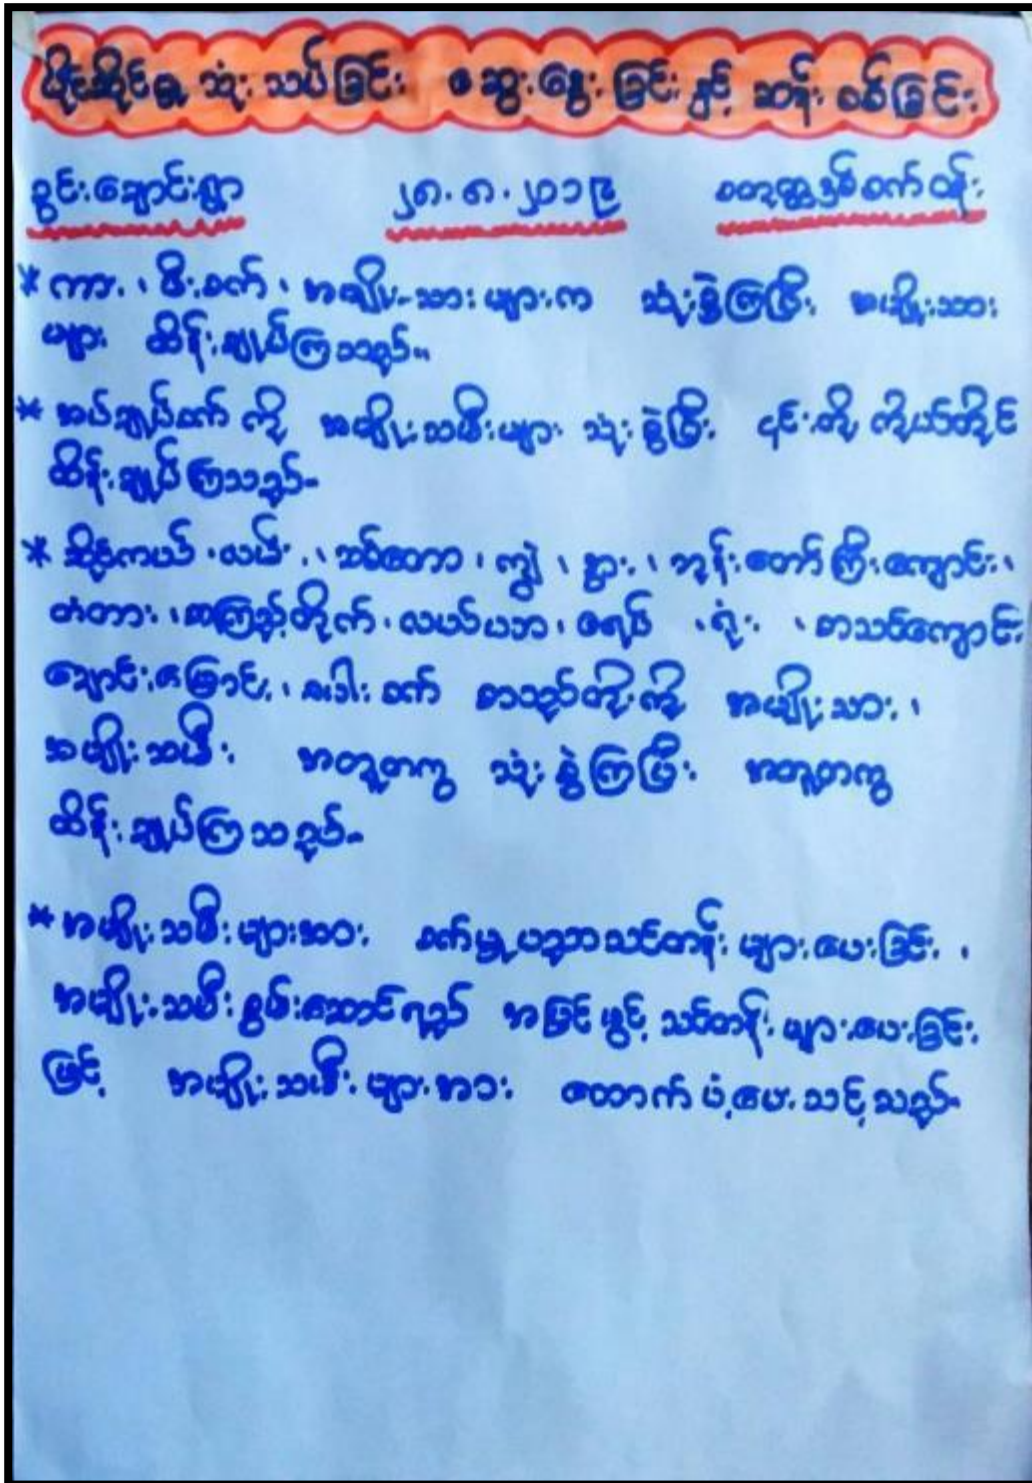 ပိုင်ဆိုင်မှု သုံးသပ်ခြင်း ဆွေးနွေးခြင်းနှင့် ဆန်းစစ်ခြင်း
ခွင်းချောင်းရွာ ၂၈.၈.၂၁၁၉ စတုတ္ထနှစ်စက်ဝန်း
* ကား ၊ မီးစက် ၊ အမျိုးသားများက သုံးစွဲကြပြီး အမျိုးသား
များ ထိန်းချုပ်ကြသည်။
* အပ်ချုပ်စက် ကို အမျိုးသမီးများ သုံးစွဲပြီး ၎င်းတို့ ကိုယ်တိုင်
ထိန်းချုပ်ကြသည်။
* ဆိုင်ကယ် ၊ လမ်း ၊ ၊ ကျွဲ ၊ နွား ၊ ဘုန်းတော်ကြီးကျောင်း ၊
တံတား ၊ စာကြည့်တိုက် ၊ လယ်ယာ ၊ ရေ ၊ ရုံး ၊ စာသင်ကျောင်း
ချောင်းမြောင်း ၊ စပါး စက် စသည်တို့ကို အမျိုးသား ၊
အမျိုးသမီး အတူတကွ သုံးစွဲကြပြီး အတူတကွ
ထိန်းချုပ်ကြသည်။
* အမျိုးသမီးများအား စက်မှုပညာသင်တန်းများပေးခြင်း ၊
အမျိုးသမီးစွမ်းဆောင်ရည် အမြင်ဖွင့် သင်တန်းများပေးခြင်း
ဖြင့် အမျိုးသမီးများအား ထောက်ပံ့ပေးသင့်သည်။